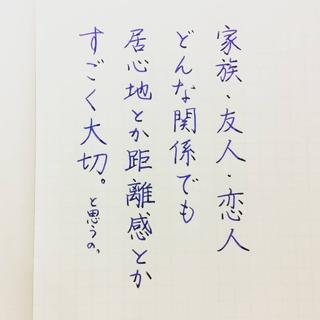 家族・友人・恋人
どんな関係でも
居心地とか距離感とか
すごく大切。と思うの。